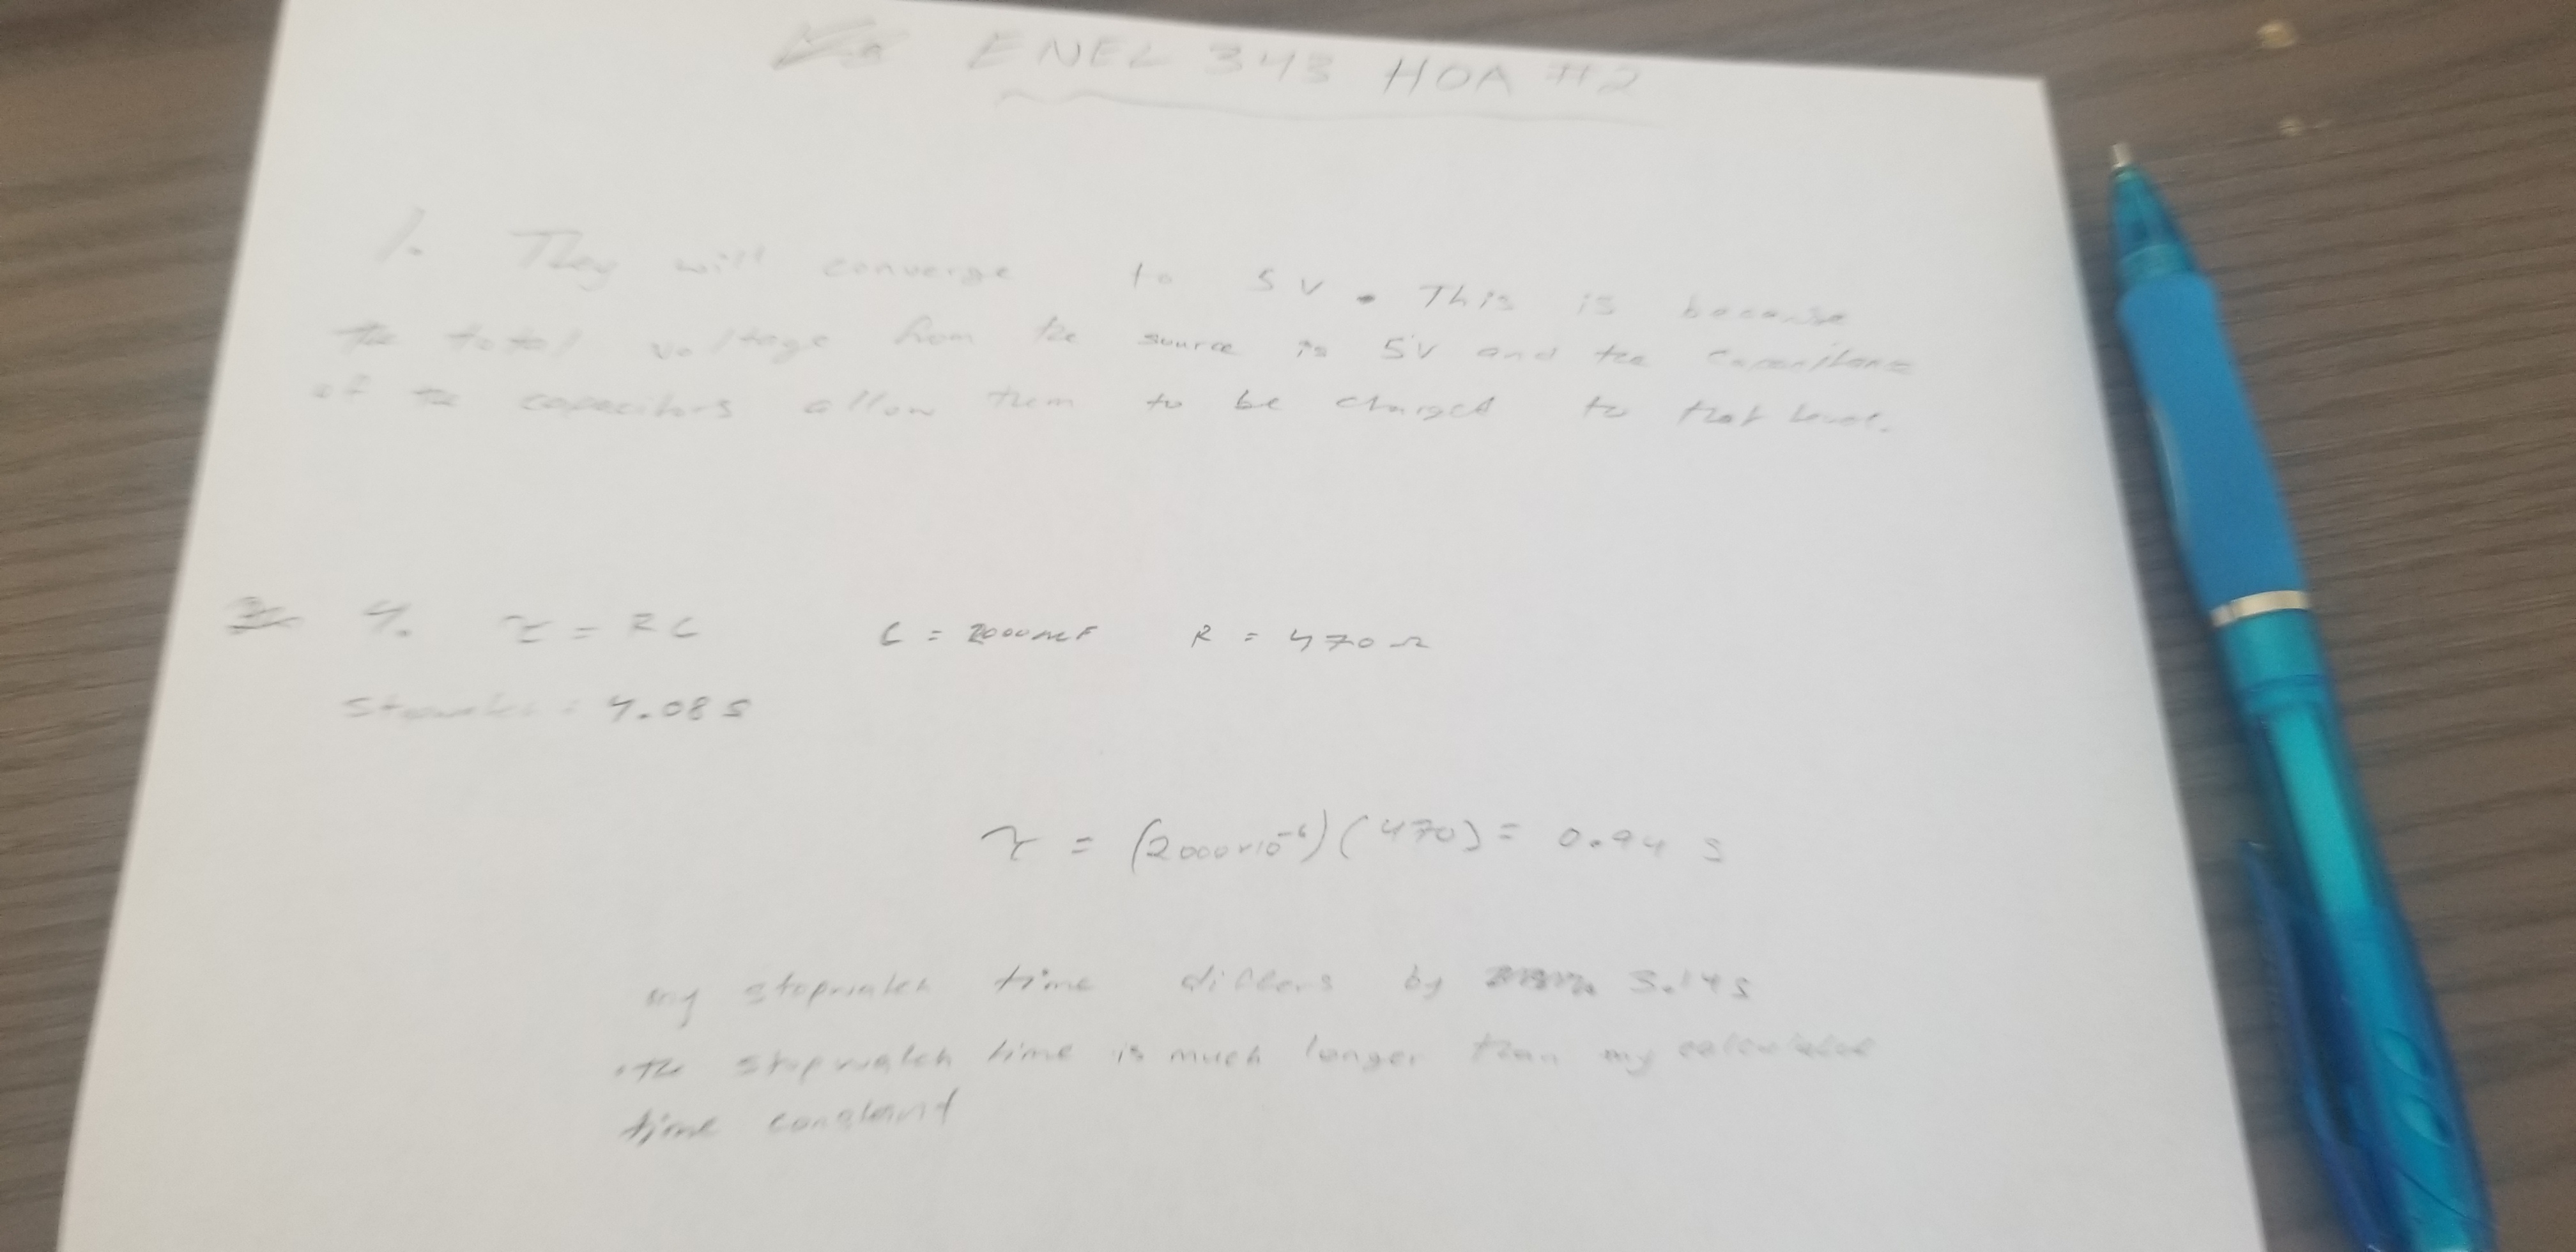 ENEL 343 HOA #2
1. They will converge to 5V. This is because
the total voltage from the source is 5V and the capacitance
of the capacitors allow them to be charged to that level.
4. τ = RC C = 2000mF R = 470Ω
Stopwatch: 4.08s
τ = (2000x10⁻⁶)(470) = 0.94 s
my stopwatch time differs by 3.14s
·The stopwatch time is much longer than my calculated
time constant